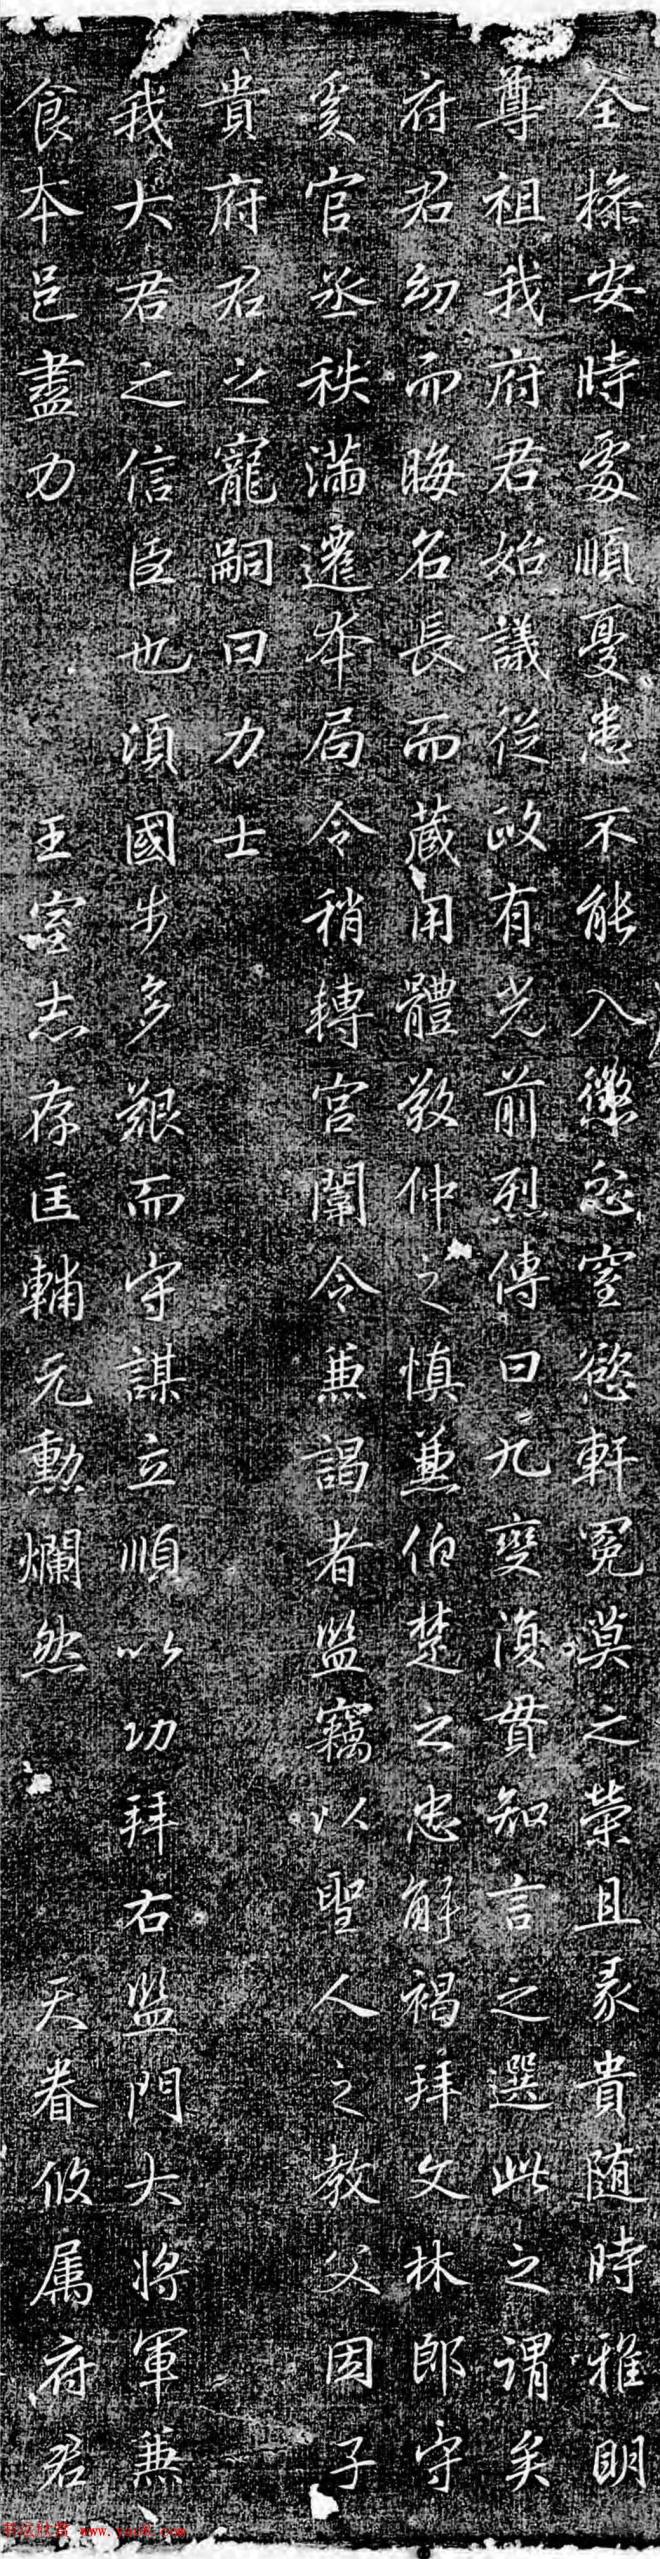 全操安時處順憂患不能入懲忿窒慾軒冕莫之榮且家貴隨時雅明
尊祖我府君始議從政有光前烈傳曰九變復貫知言之選此之謂矣
府君幼而晦名長而藏用體敬仲之慎兼伯楚之忠解褐拜文林郎守
奚官丞秩滿遷本局令稍轉宮闈令兼謁者監竊以聖人之教父因子
貴府君之寵嗣曰力士
我大君之信臣也頃國步多艱而守謀立順以功拜右監門大將軍兼
食本邑盡力 王室志存匡輔元勳爛然 天眷攸属府君
www.yac8.com